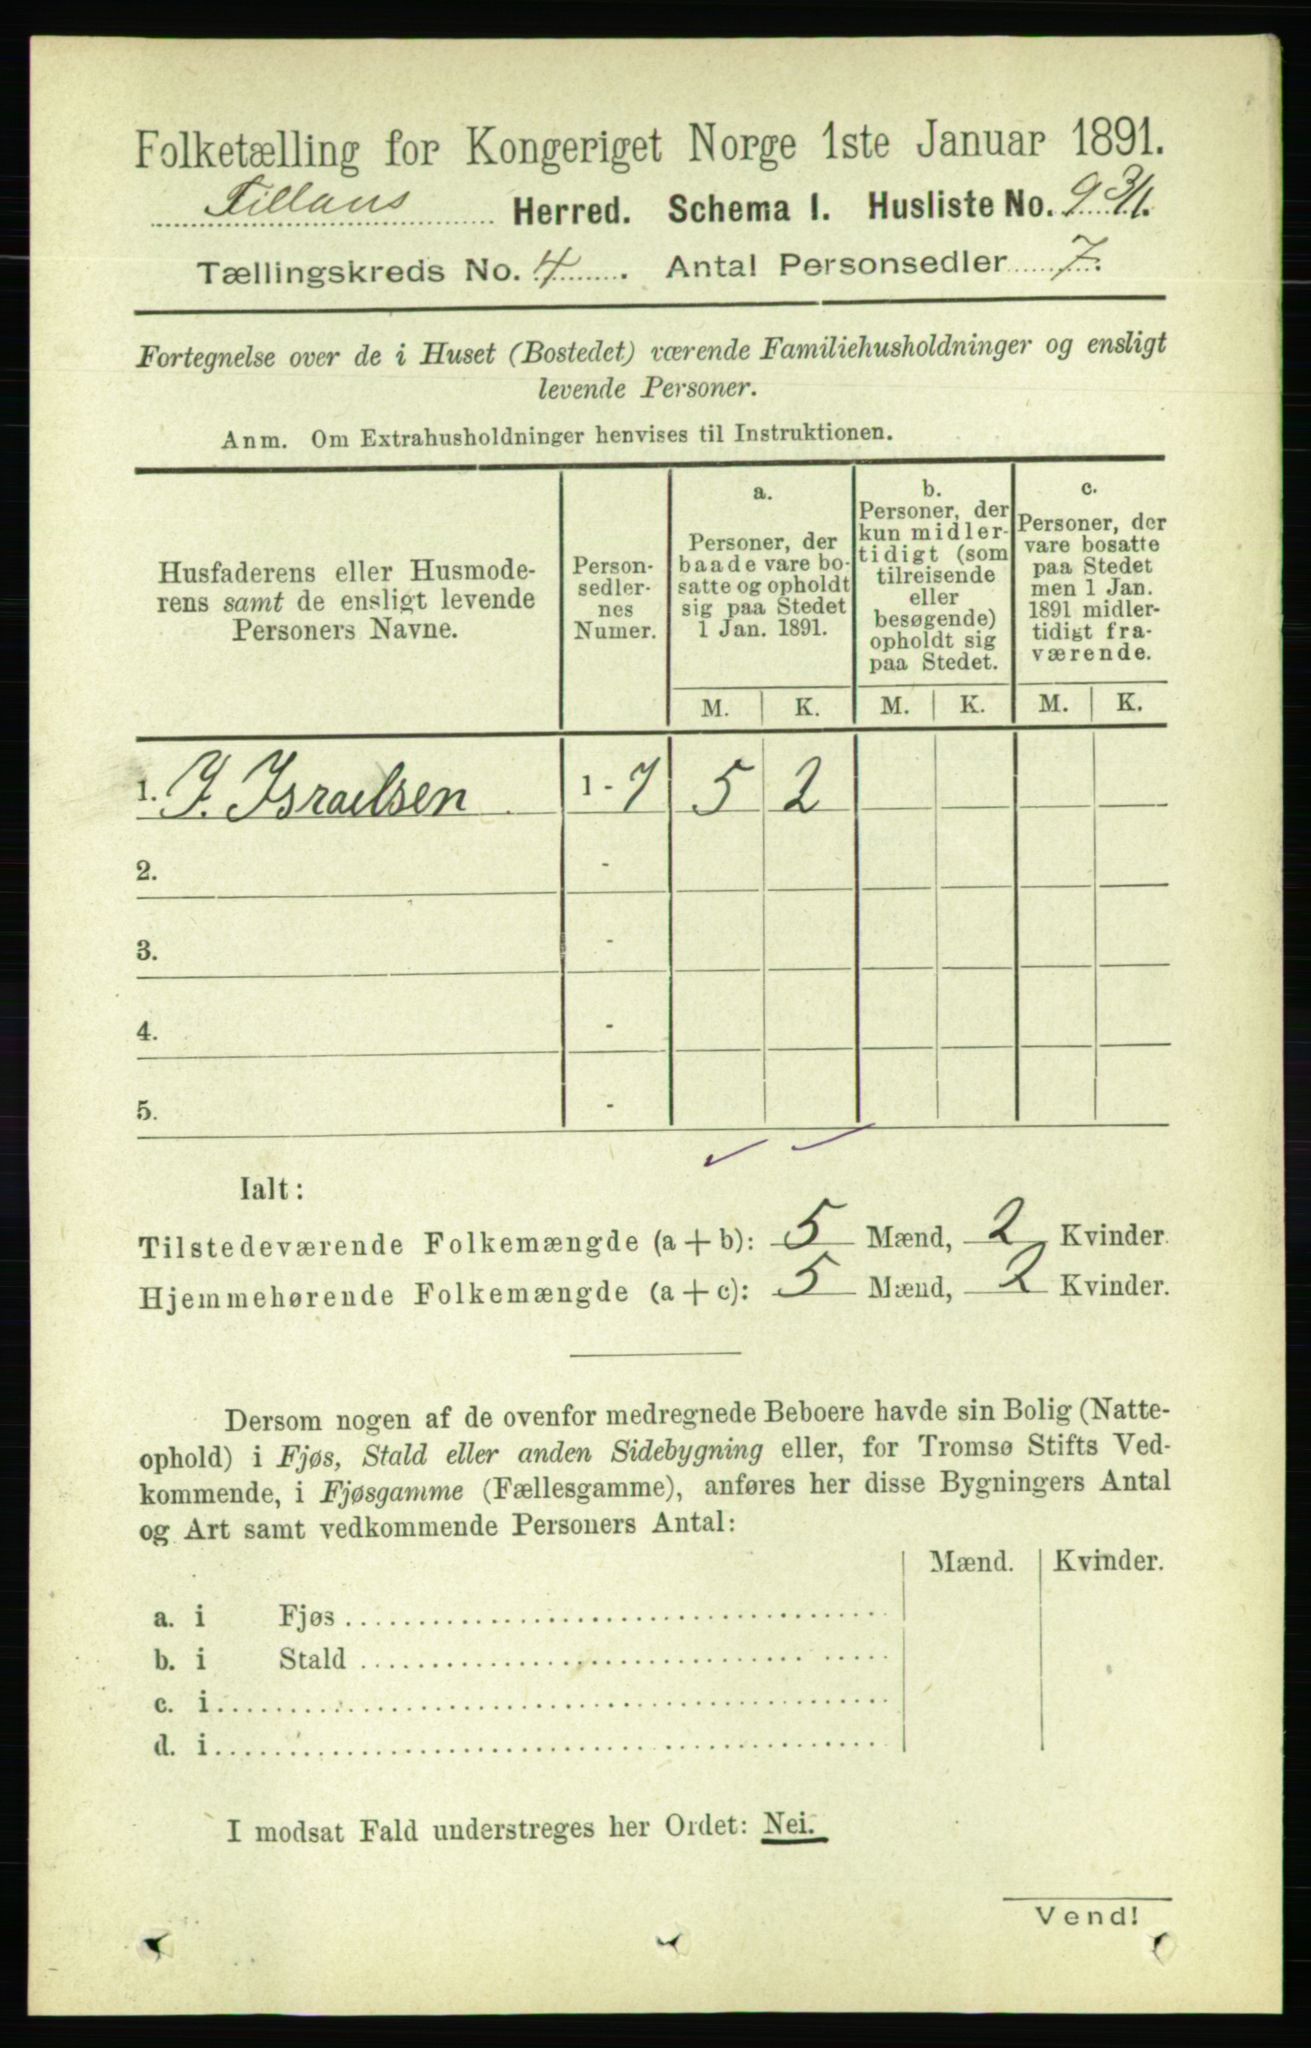 Folketælling for Kongeriget Norge 1ste Januar 1891.
Fillans Herred. Schema I. Husliste No.
Tællingskreds No. 4. Antal Personsedler 7.
Fortegnelse over de i Huset (Bostedet) værende Familiehusholdninger og ensligt
levende Personer.
Anm. Om Extrahusholdninger henvises til Instruktionen.
Husfaderens eller Husmode-
rens samt de ensligt levende
Personers Navne.
Person-
sedler-
nes
Numer.
a.
Personer, der
baade vare bo-
satte og opholdt
sig paa Stedet
1 Jan. 1891.
b.
Personer, der
kun midler-
tidigt (som
tilreisende
eller
besøgende)
opholdt sig
paa Stedet.
c.
Personer, der
vare bosatte
paa Stedet
men 1 Jan.
1891 midler-
tidigt fra-
værende.
M. K. M. K. M. K.
1. J. Israelsen 1 - 7 5 2
2. -
3. -
4. -
5. -
Ialt:
Tilstedeværende Folkemængde (a + b): 5 Mænd, 2 Kvinder.
Hjemmehørende Folkemængde (a + c): 5 Mænd, 2 Kvinder.
Dersom nogen af de ovenfor medregnede Beboere havde sin Bolig (Natte-
ophold) i Fjøs, Stald eller anden Sidebygning eller, for Tromsø Stifts Ved-
kommende, i Fjøsgamme (Fællesgamme), anføres her disse Bygningers Antal
og Art samt vedkommende Personers Antal:
Mænd. Kvinder.
a. i Fjøs
b. i Stald
c. i
d. i
I modsat Fald understreges her Ordet: Nei.
Vend!